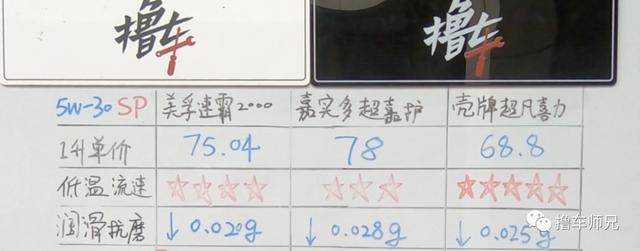 撸车 撸车
5W-30 SP 美孚速霸2000 嘉实多超嘉护 壳牌超凡喜力
1升单价 75.04 78 68.8
低温流速 ☆☆☆☆ ☆☆☆ ☆☆☆☆☆
润滑抗磨 ↓0.020g ↓0.028g ↓0.025g
撸车师兄